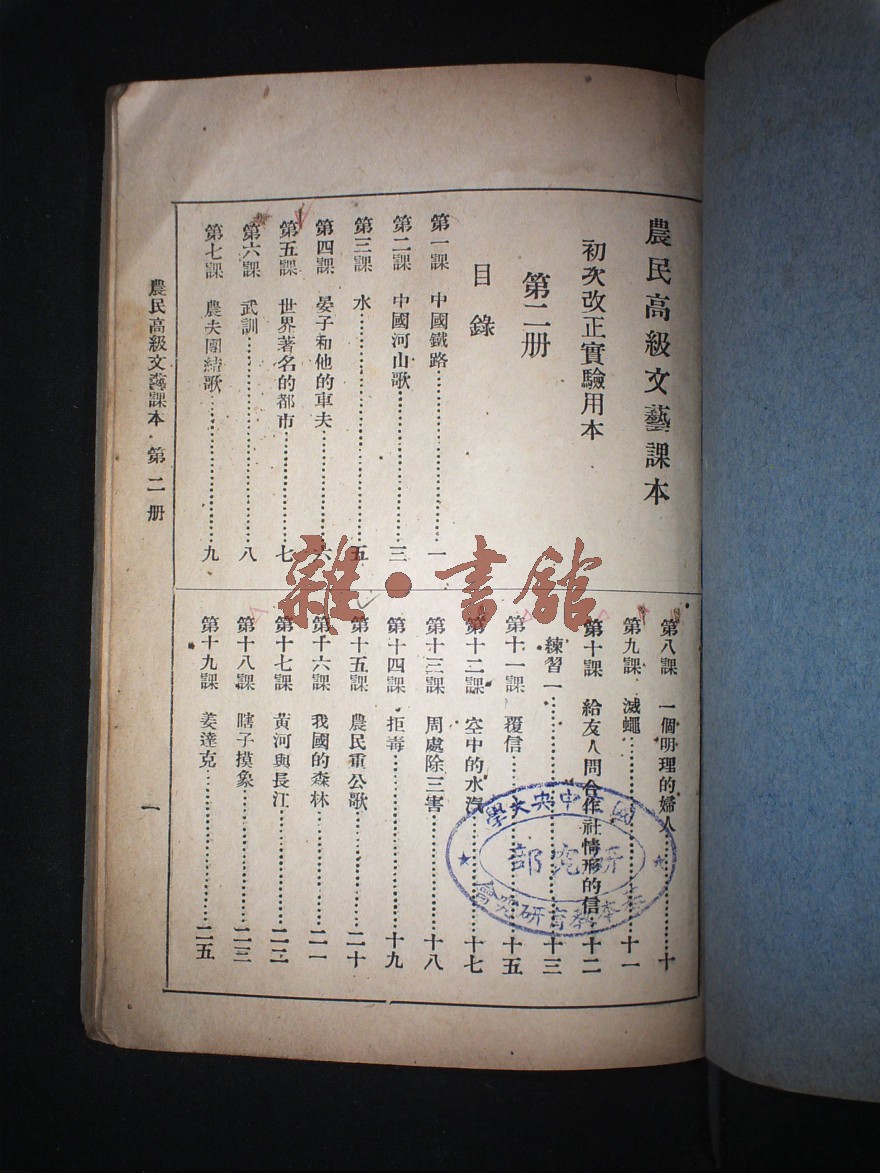 農民高級文藝課本
初次改正實驗用本
第二册
目錄
第一課 中國鐵路……一
第二課 中國河山歌……三
第三課 水……五
第四課 晏子和他的車夫……六
第五課 世界著名的都市……七
第六課 武訓……八
第七課 農夫團結歌……九
第八課 一個明理的婦人……十
第九課 滅蠅……十一
第十課 給友人問合作社情形的信……十二
練習一……十三
第十一課 覆信……十五
第十二課 空中的水汽……十七
第十三課 周處除三害……十八
第十四課 拒毒……十九
第十五課 農民重公歌……二十
第十六課 我國的森林……二一
第十七課 黃河與長江……二二
第十八課 瞎子摸象……二三
第十九課 姜達克……二五
農民高級文藝課本 · 第二册
一
雜·書館
國立中央大學
研究部
基本教育研究會